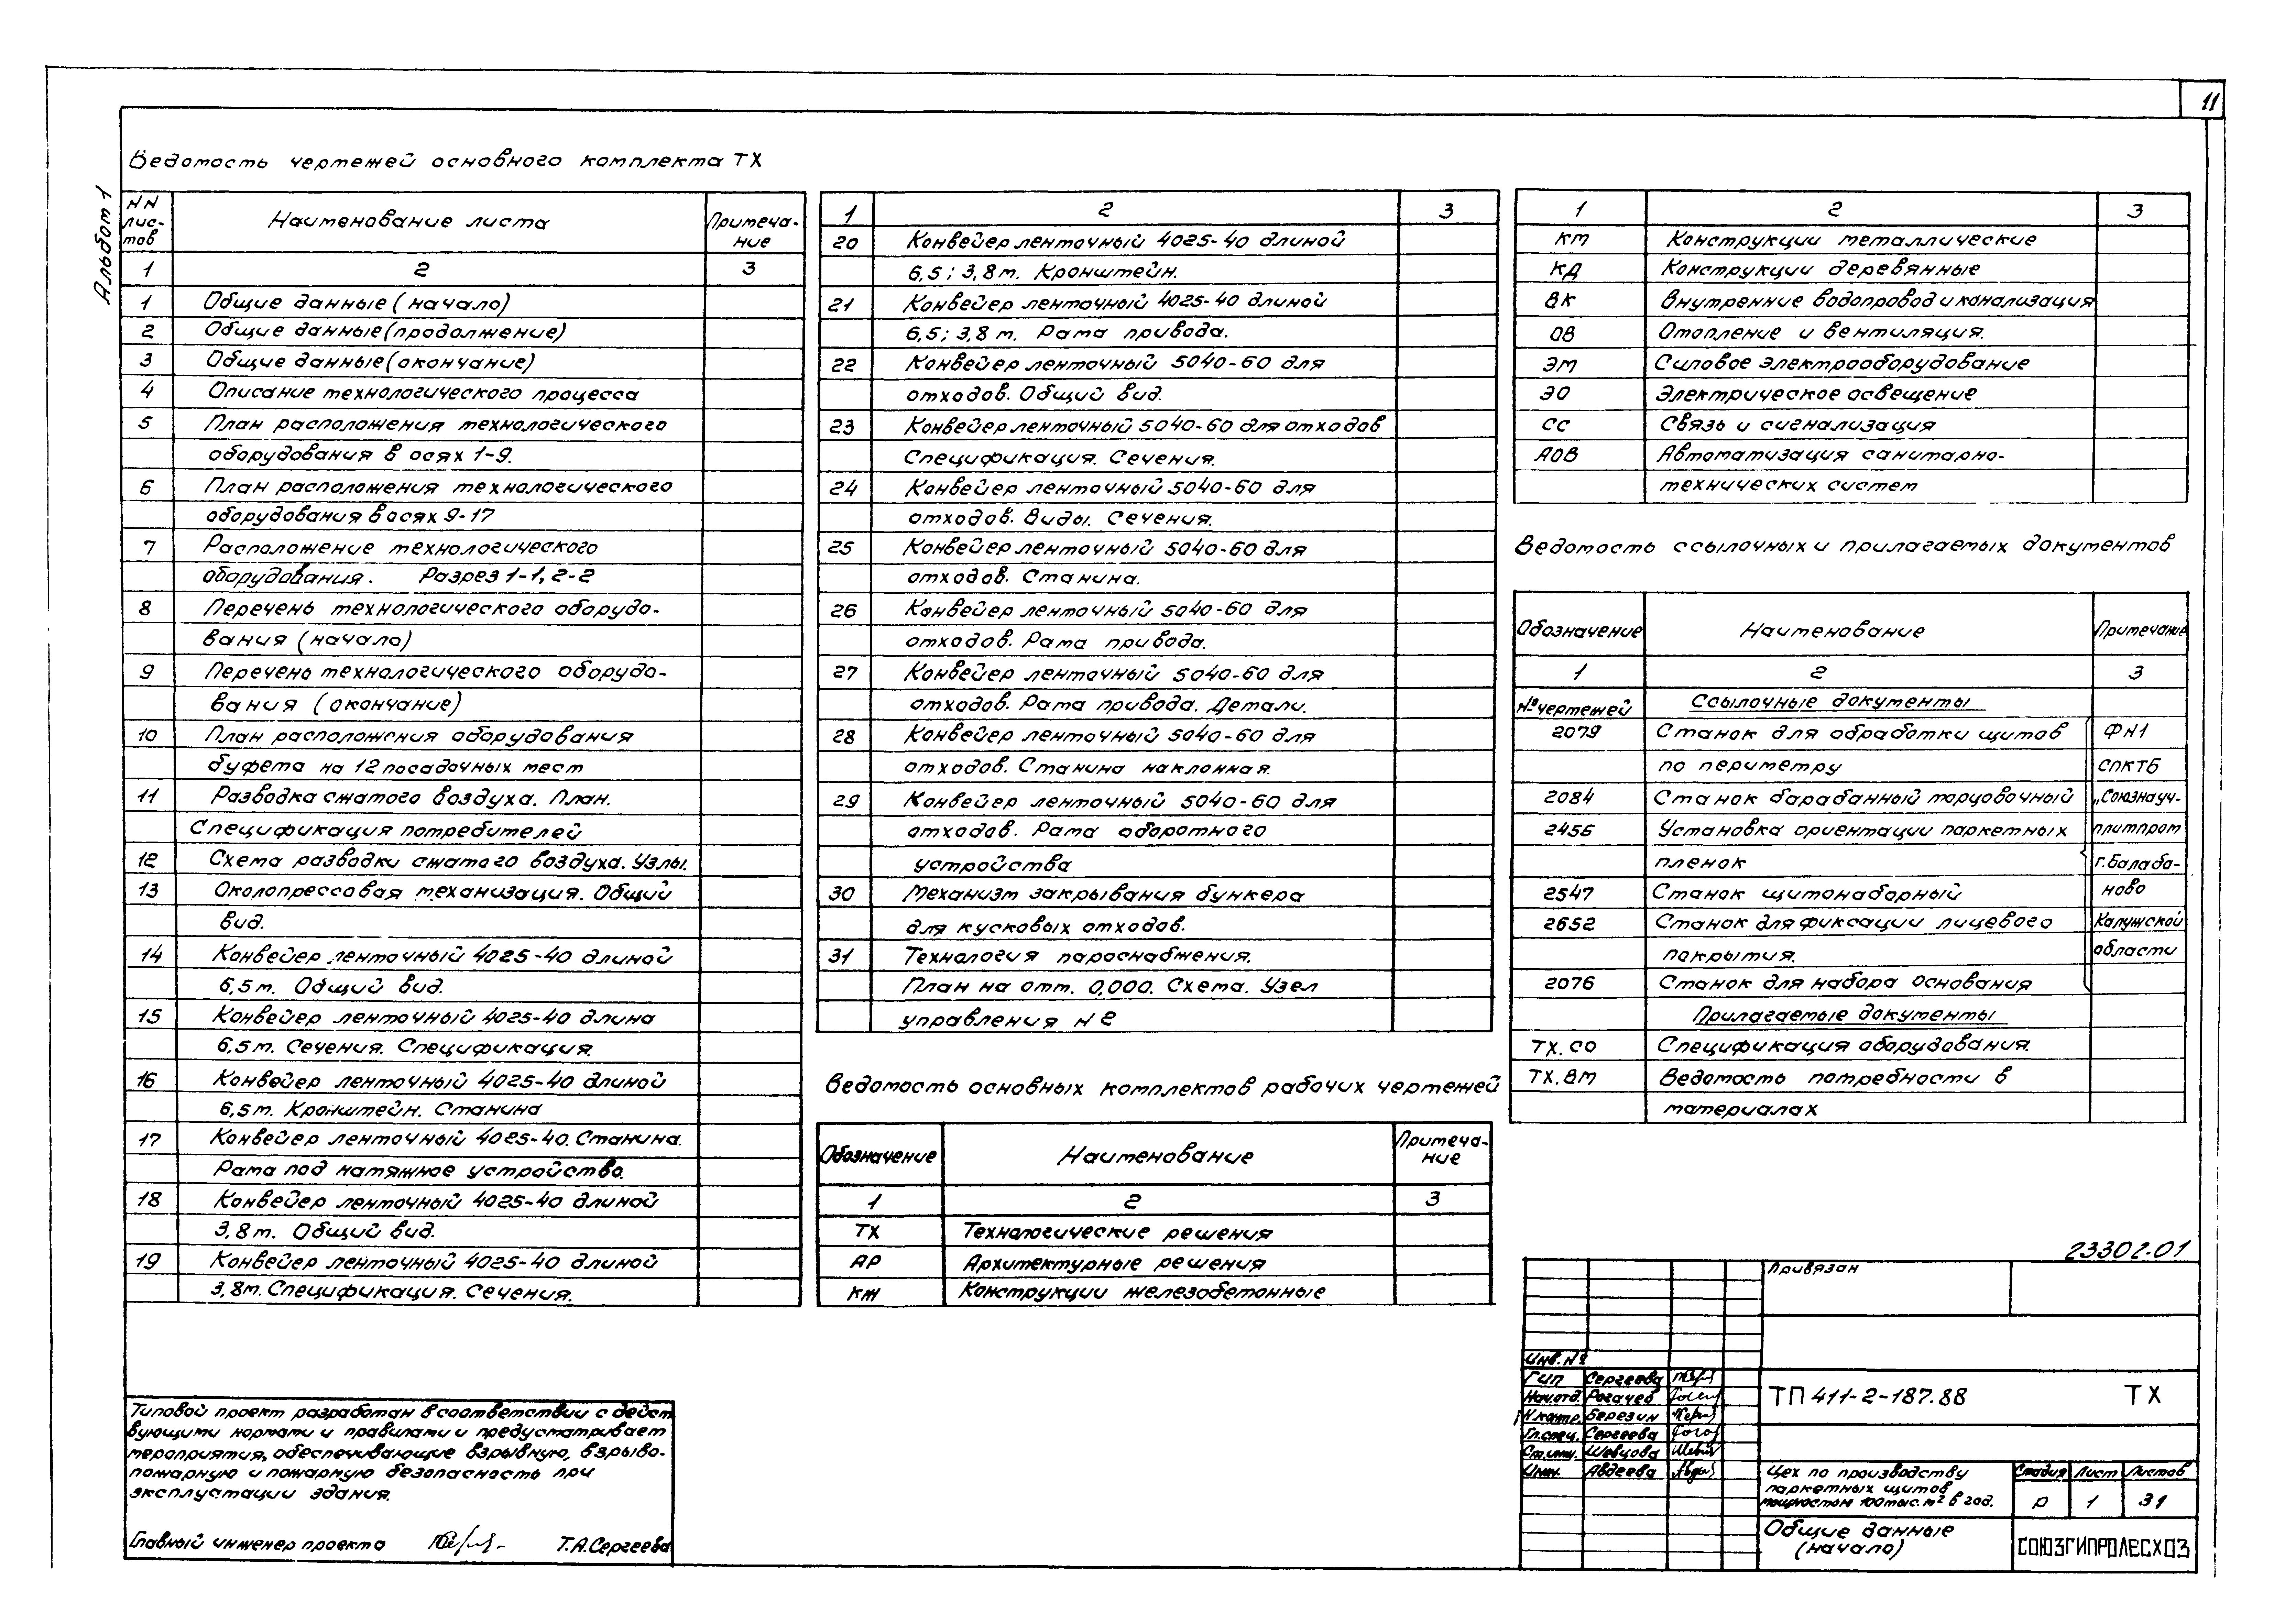 11
Альбом 1
Ведомость чертежей основного комплекта ТХ
NN лис-тов Наименование листа Примеча-ние
1 2 3
1 Общие данные (начало)
2 Общие данные (продолжение)
3 Общие данные (окончание)
4 Описание технологического процесса
5 План расположения технологического
оборудования в осях 1-9.
6 План расположения технологического
оборудования в осях 9-17
7 Расположение технологического
оборудования. Разрез 1-1, 2-2
8 Перечень технологического оборудо-
вания (начало)
9 Перечень технологического оборудо-
вания (окончание)
10 План расположения оборудования
буфета на 12 посадочных мест
11 Разводка сжатого воздуха. План.
Спецификация потребителей
12 Схема разводки сжатого воздуха. Узлы.
13 Околопрессовая механизация. Общий
вид.
14 Конвейер ленточный 4025-40 длиной
6,5м. Общий вид.
15 Конвейер ленточный 4025-40 длина
6,5м. Сечения. Спецификация.
16 Конвейер ленточный 4025-40 длиной
6,5м. Кронштейн. Станина
17 Конвейер ленточный 4025-40. Станина.
Рама под натяжное устройство.
18 Конвейер ленточный 4025-40 длиной
3,8м. Общий вид.
19 Конвейер ленточный 4025-40 длиной
3,8м. Спецификация. Сечения.
1 2 3
20 Конвейер ленточный 4025-40 длиной
6,5; 3,8м. Кронштейн.
21 Конвейер ленточный 4025-40 длиной
6,5; 3,8м. Рама привода.
22 Конвейер ленточный 5040-60 для
отходов. Общий вид.
23 Конвейер ленточный 5040-60 для отходов
Спецификация. Сечения.
24 Конвейер ленточный 5040-60 для
отходов. Виды. Сечения.
25 Конвейер ленточный 5040-60 для
отходов. Станина.
26 Конвейер ленточный 5040-60 для
отходов. Рама привода.
27 Конвейер ленточный 5040-60 для
отходов. Рама привода. Детали.
28 Конвейер ленточный 5040-60 для
отходов. Станина наклонная.
29 Конвейер ленточный 5040-60 для
отходов. Рама оборотного
устройства
30 Механизм закрывания бункера
для кусковых отходов.
31 Технология пароснабжения.
План на отм. 0,000. Схема. Узел
управления N2
Ведомость основных комплектов рабочих чертежей
Обозначение Наименование Примеча-ние
1 2 3
ТХ Технологические решения
АР Архитектурные решения
КЖ Конструкции железобетонные
1 2 3
КМ Конструкции металлические
КД Конструкции деревянные
ВК Внутренние водопровод и канализация
ОВ Отопление и вентиляция.
ЭМ Силовое электрооборудование
ЭО Электрическое освещение
СС Связь и сигнализация
АОВ Автоматизация санитарно-
технических систем
Ведомость ссылочных и прилагаемых документов
Обозначение Наименование Примечание
1 2 3
№ чертежей Ссылочные документы
2079 Станок для обработки щитов ФН1
по периметру СПКТБ
2084 Станок барабанный торцовочный „Союзнауч-
2456 Установка ориентации паркетных плитпром
пленок г. Балаба-
2547 Станок щитонаборный ново
2652 Станок для фиксации лицевого Калужской
покрытия. области
2076 Станок для набора основания
Прилагаемые документы
ТХ.СО Спецификация оборудования.
ТХ.ВМ Ведомость потребности в
материалах
Типовой проект разработан в соответствии с дейст
вующими нормами и правилами и предусматривает
мероприятия, обеспечивающие взрывную, взрыво-
пожарную и пожарную безопасность при
эксплуатации здания.
Главный инженер проекта Т.А.Сергеева
23302.01
Привязан
Инв. №
ГИП Сергеева
Нач.отд. Рогачев
Н.контр. Березин
Гл.спец. Сергеева
Ст.инж. Шевцова
Инж. Авдеева
ТП 411-2-187.88 ТХ
Цех по производству
паркетных щитов
мощностью 100 тыс. м² в год.
Стадия Лист Листов
Р 1 31
Общие данные
(начало)
СОЮЗГИПРОЛЕСХОЗ